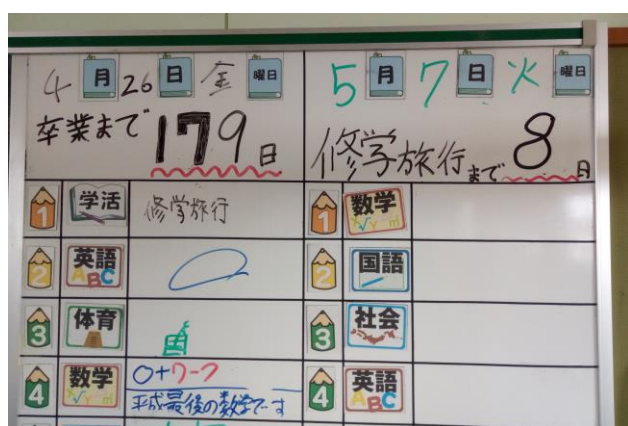 4月26日 金曜日
卒業まで179日
1 学活 修学旅行
2 英語 ABC
3 体育
4 数学 ○+ワーク
平成最後の数学でーす
5月7日 火曜日
修学旅行まで8日
1 数学
2 国語
3 社会
4 英語 ABC